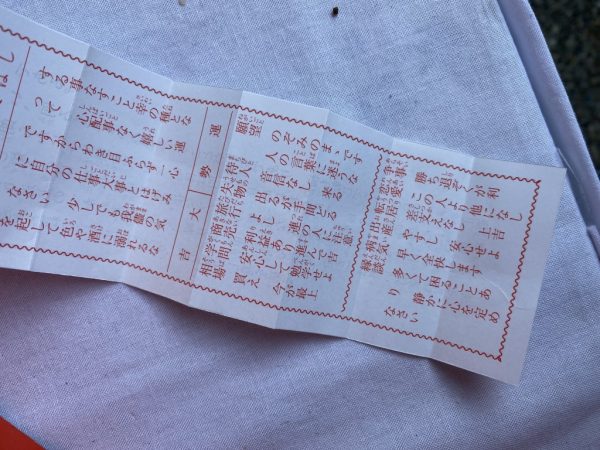 はし
する事なすこと幸の種とな
って心配事なく嬉しい運
ですからわき目ふらず一心
に自分の仕事大事とはげみ
なさい 少しでも我儘の気
を起して色や酒に溺れるな
運勢 大吉
願望 のぞみのまゝです
人の言葉に迷うな
待人 音信なし 来る
失物 出るが手間どる
旅行 連の人に注意
商売 利益あり 大吉
学問 安心して勉学せよ
相場 買え 今が最上
争事 勝ち退くが利
恋愛 この人より他になし
転居 差支えなし 上吉
出産 やすし 安心せよ
病気 早く全快します
縁談 多くて困ることあ
り 静かに心を定め
なさい